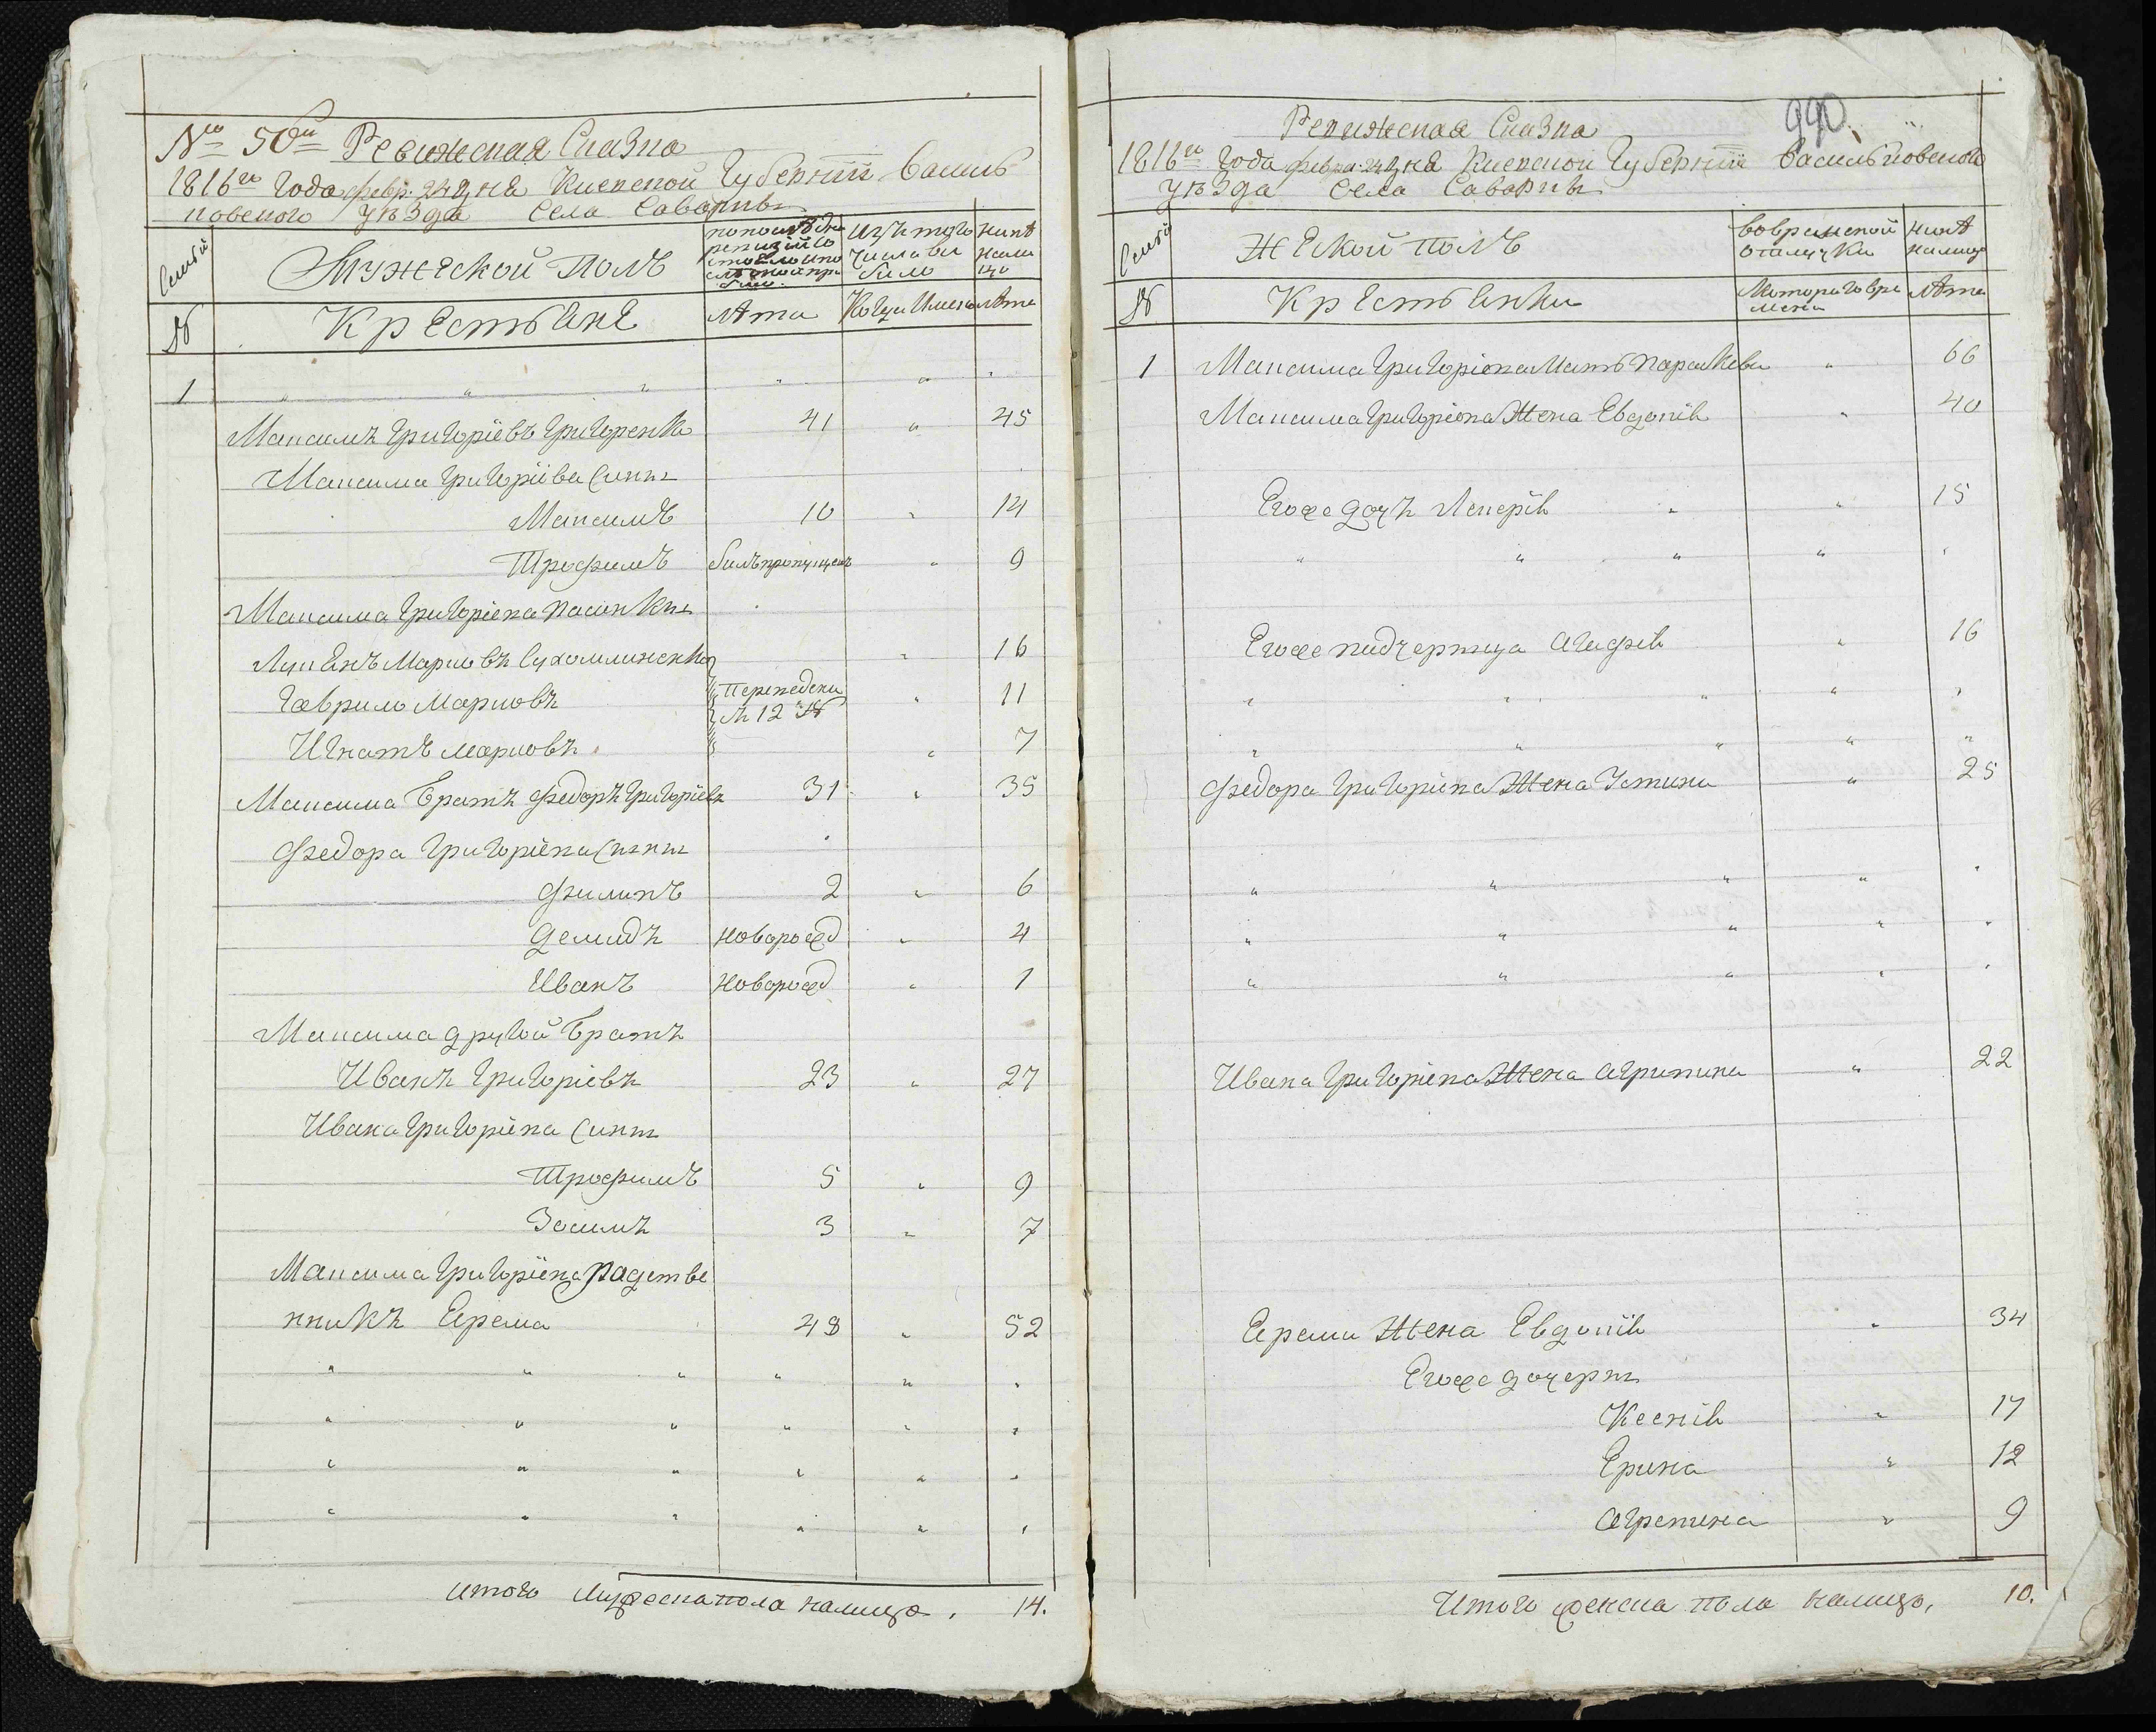 № 50й Ревижская Сказка
1816го Года февр. 24 дня Киевской Губернии Василь
ковского уѣзда Села Саварки
Семьи
Мужеской полъ
по последней ревизии состояло и после того прибыло
Изъ того числа вибило
Нинѣ налицо
№
Крестьяне
лѣта
Когда Именно
лѣта
1 " " " " " "
Максимъ Григорїевъ Григоренко 41 " 45
Максима Григорїева Сины
Максимъ 10 " 14
Трофимъ билъ пропущенъ " 9
Максима Григорїева пасинки
Лукьянъ Марковъ Сухомлиненко " 16
Гаврило Марковъ Переведени " 11
съ 12 №
Игнатъ Марковъ " 7
Максима Братъ Федоръ Григорїевъ 31 " 35
Федора Григорїева Сыны
Филипъ 2 " 6
Демидъ Новорожд " 4
Иванъ Новорожд " 1
Максима другой Братъ
Иванъ Григорїевъ 23 " 27
Ивана Григорїева Сины
Трофимъ 5 " 9
Зосимъ 3 " 7
Максима Григорїева Радстве
нникъ Ерема 48 " 52
" " " " " "
" " " " " "
" " " " " "
" " " " " "
Итого Мужеска пола налицо. 14.
990.
Ревижская Сказка
1816го Года февра. 24 дня Киевской Губернии Васильковской
уѣзда Села Саварки
Семьи
Жеской полъ
Вовременной отлучки
Нинѣ налицо
№
Крестьянки
Которого времени
лѣта
1 Максима Григорїева Мать Параскева " 66
Максима Григорїева Жена Евдокїя " 40
Егоже дочъ Лекерїя " " 15
" " " " "
Егоже падчерица Агафїя " 16
" " " " "
" " " " "
Федора Григорїева Жена Устина " 25
" " " " "
" " " " "
" " " " "
Ивана Григорїева Жена Агрипина " 22
Ереми Жена Евдокїя " 34
Егоже дочери
Ксенїя " 17
Ерина " 12
Агрепина " 9
Итого женска пола налицо, 10.